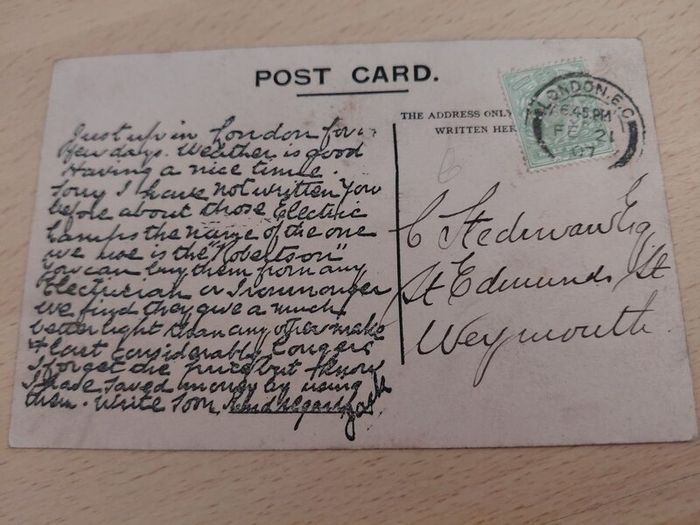 POST CARD.
THE ADDRESS ONLY
WRITTEN HER
LONDON. E.C.
6.45 PM
FE 21
07
Just up in London for a
few days. Weather is good
Having a nice time.
Sorry I have not written you
before about those Electric
Lamps the name of the one
we use is the "Robertson"
You can buy them from any
Electrician or Ironmonger
we find they give a much
better light than any other make
& last considerably longer
I forget the price but I know
I have saved money by using
them. Write soon, Kind regards
Jack
C Stedman Esq
St Edmunds St
Weymouth